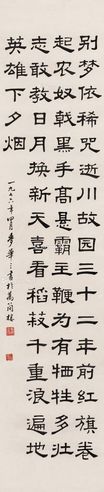 别梦依稀咒逝川故园三十二年前红旗卷
起农奴戟黑手高悬霸主鞭为有牺牲多壮
志敢教日月换新天喜看稻菽千重浪遍地
英雄下夕烟
一九七六年四月